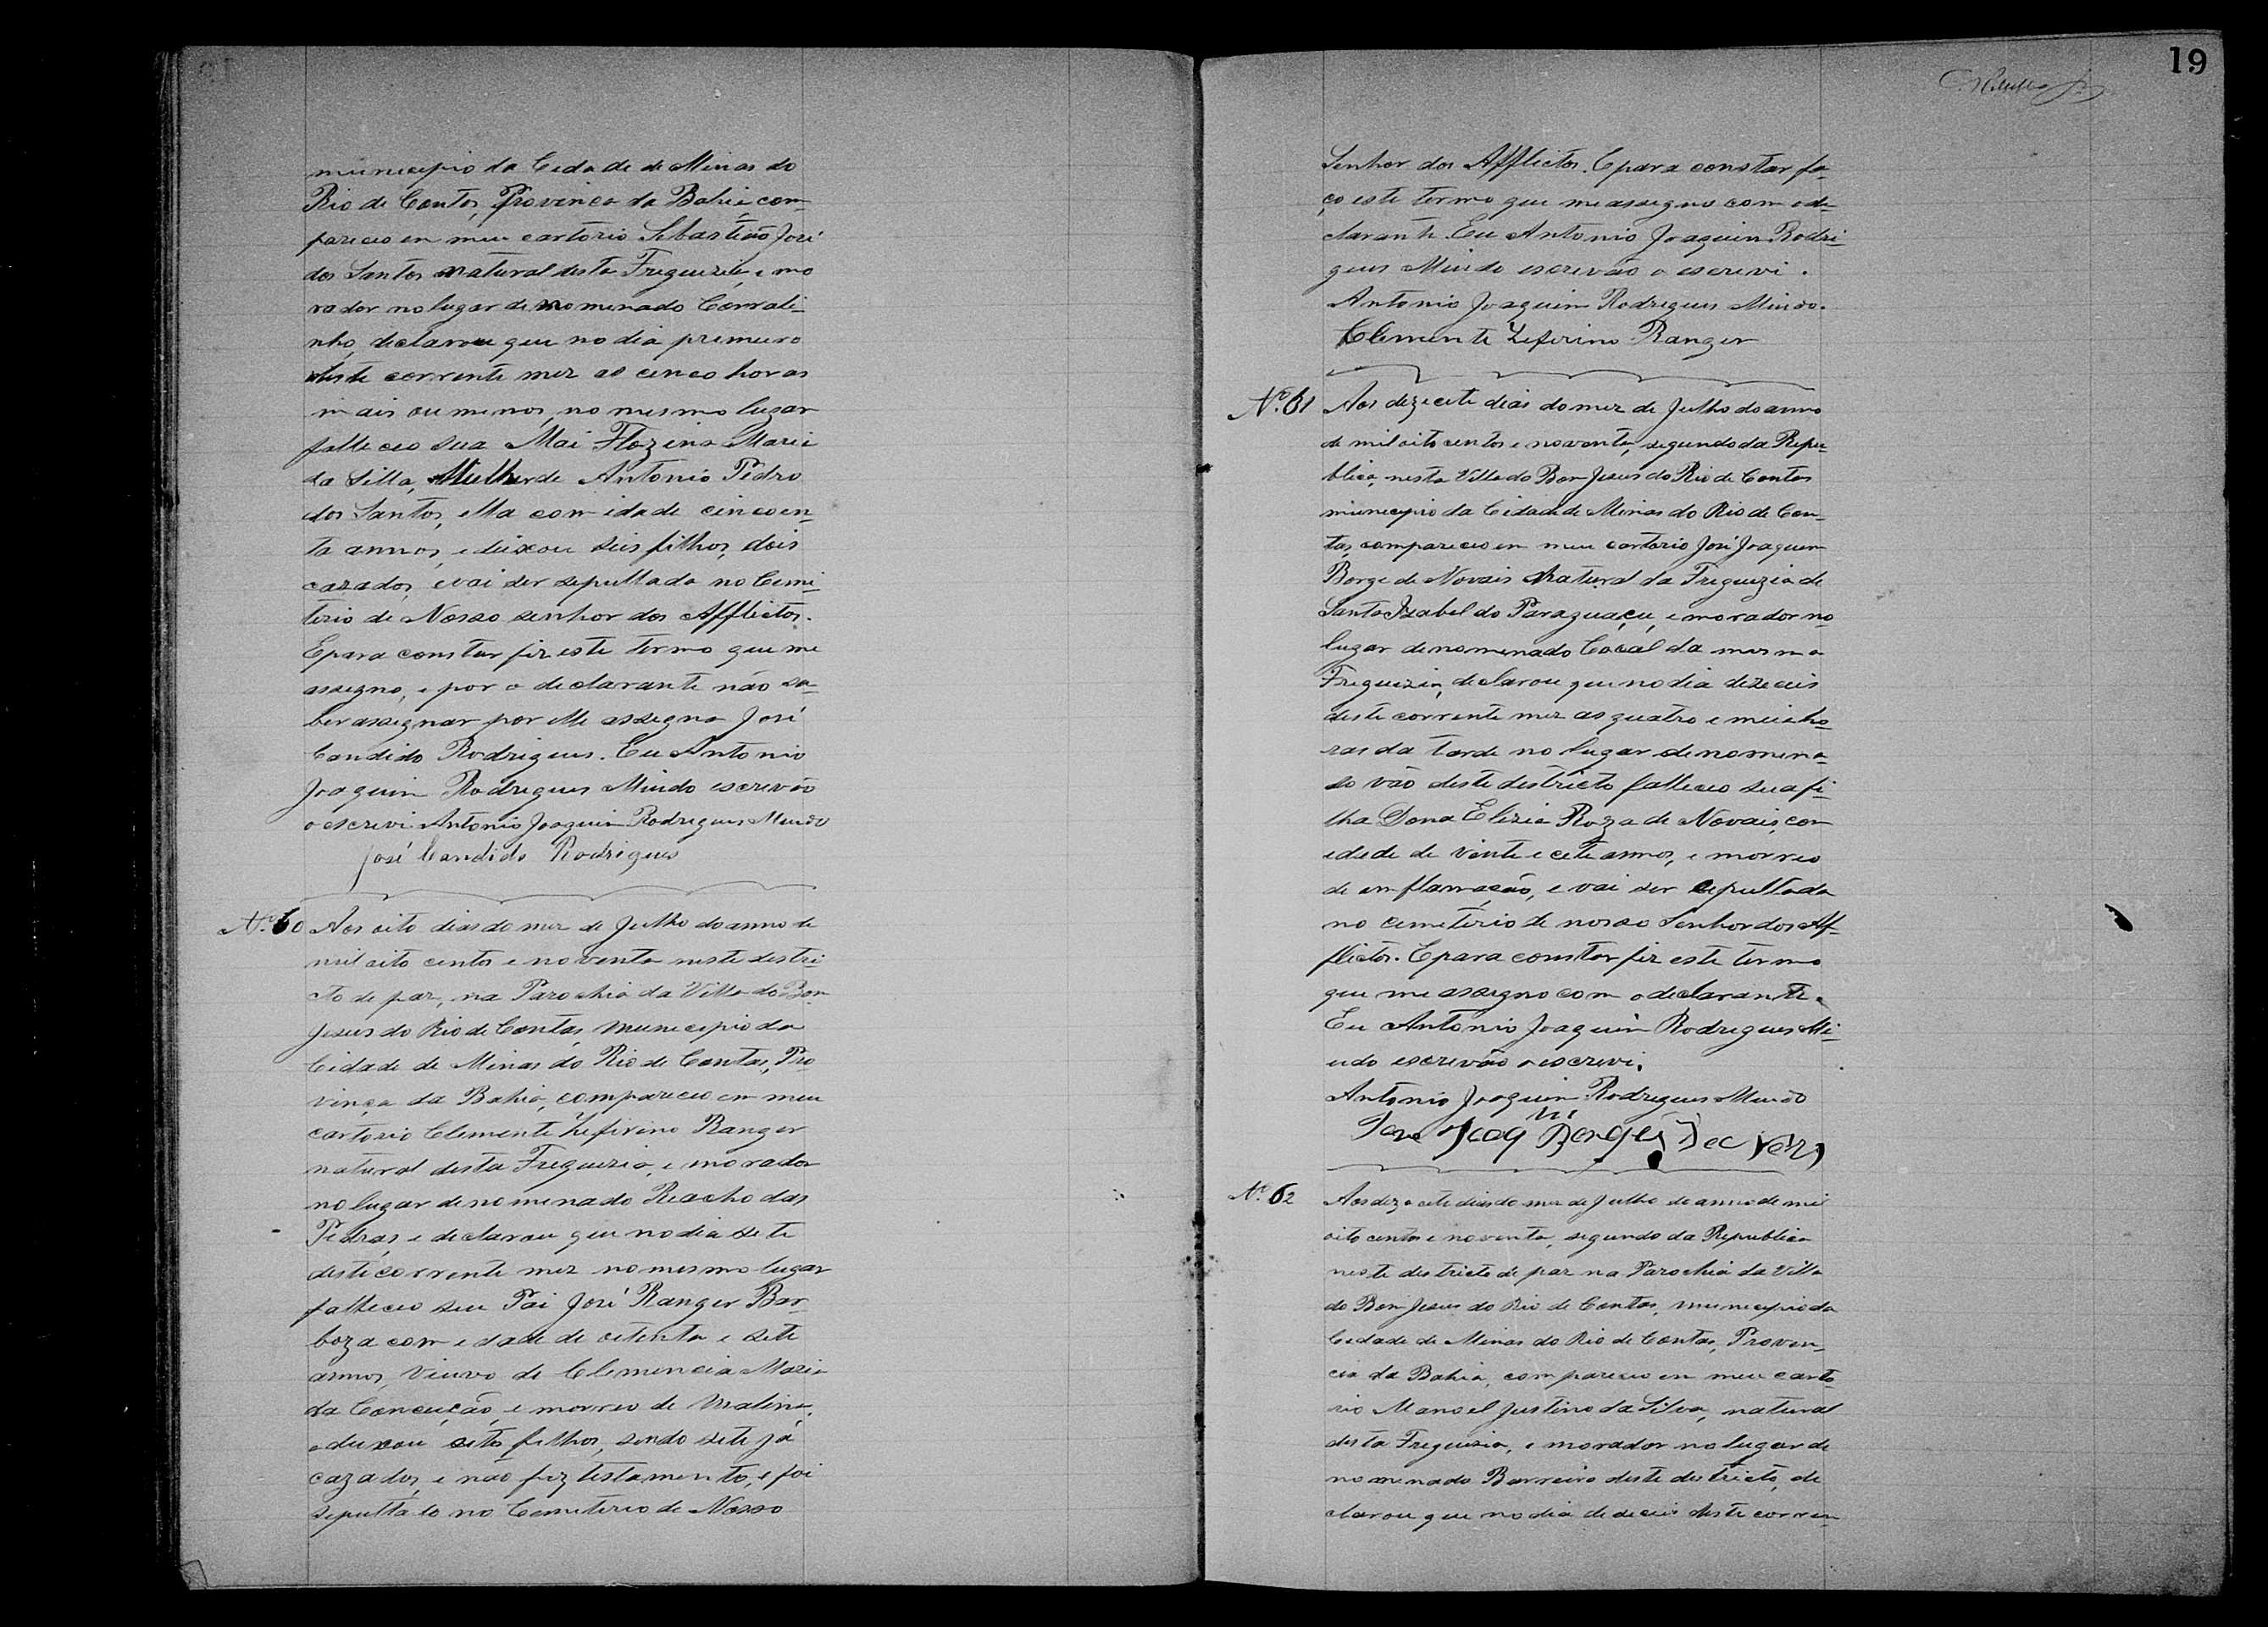 municipio da Cidade de Minas do
Rio de Contas, Provinca da Bahia, com-
pareceo em meu cartorio Sebastião José
dos Santos natural desta Freguezia, e mo
rador no lugar denomenado Corrali-
nho, declarou que no dia primeuro
deste corrente mez as cenco horas
mais ou menos, no mesmo lugar
falleceo sua Mai Flozina Maria
da Silla, Mulher de Antonio Pedro
dos Santos, ella com idade cincoen-
ta annos, e deixou seis filhos, dois
cazados, e vai ser sepultada no Cemi-
terio de Nosso senhor dos Afflictos.
E para constar fiz este termo que me
assegno, e por o declarante não sa-
ber assegnar por elle assegna José
Candido Rodrigues. Eu Antonio
Joaquim Rodrigues Miudo escrevão
o escrevi. Antonio Joaquim Rodrigues Miudo
José Candido Rodrigues
Nº. 60 Aos oito dias do mez de Julho do anno de
mil oito centos e noventa neste destri-
cto de paz, na Parochia da Villa do Bom
Jesus do Rio de Contas, Municipio da
Cidade de Minas do Rio de Contas, Pro
vinça da Bahia, compareceo em meu
cartorio Clemente Zeferino Ranger
natural desta Freguezia, e morador
no lugar denomenado Reacho das
Pedras, e declarou que no dia sete
deste corrente mez no mesmo lugar
falleceo seu Pai José Ranger Bar-
boza com edade de oitenta e sete
annos, Viuvo de Clemencia Maria
da Conceição, e morreo de Malina,
e deixou oito filhos, sendo sete já
cazados, e não fez testamento, e foi
sepultado no Cemiterio de Nosso
19
Senhor dos Afflictos. E para constar fa-
ço este termo que me assegno com o de-
clarante. Eu Antonio Joaquim Rodri-
gues Miudo escrevão o escrevi.
Antonio Joaquim Rodrigues Miudo.
Clemente Zeferino Ranger
Nº. 61 Aos dezecete dias do mez de Julho do anno
de mil oito centos e noventa, segundo da Repu-
blica, nesta Villa do Bom Jesus do Rio de Contas
municipio da Cidade de Minas do Rio de Con-
tas, compareceo em meu cartorio José Joaquim
Borge de Novais Natural da Freguezia de
Santa Izabel do Paraguaçu, e morador no
lugar denomenado Cocál da mesma
Freguezia, declarou que no dia dezeceis
deste corrente mez as quatro e meia ho-
ras da tarde no lugar denomena-
do vão deste destricto falleceo sua fi-
lha Dona Elizia Roza de Novais, com
edade de vinte e cete annos, e morreo
de emflamação, e vai ser cepultada
no cemeterio de nosso Senhor dos Af-
flictos. E para constar fiz este termo
que me assegno com o declarante.
Eu Antonio Joaquim Rodrigues Mi-
udo escrevão o escrevi.
Antonio Joaquim Rodrigues Miudo
Joaq Borges
Nº. 62 Aos dezacete dias do mez de Julho do anno de mil
oito centos e noventa, segundo da Republica
neste destricto de paz na Parochia da Villa
do Bom Jesus do Rio de Contas, municipio da
Cedade de Minas do Rio de Contas, Proven-
cia da Bahia, compareceo em meu carto-
rio Manoel Justino da Silva, natural
desta Freguizia, e morador no lugar de
nomenado Barreiro deste destricto, de
clarou que no dia dedeceis deste corren-